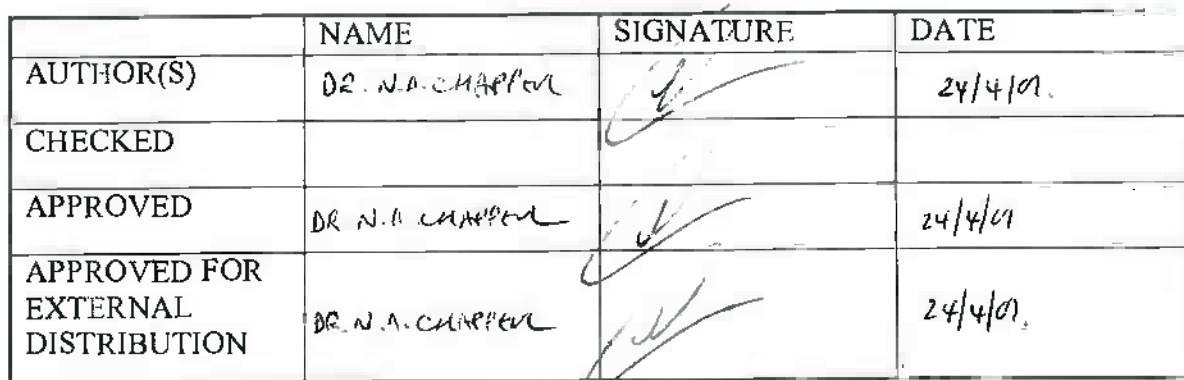 NAME SIGNATURE DATE
AUTHOR(S) DR. N.A. CHAPPELL 24/4/01.
CHECKED
APPROVED DR N.A CHAPPELL 24/4/01
APPROVED FOR
EXTERNAL DR. N.A. CHAPPELL 24/4/01.
DISTRIBUTION